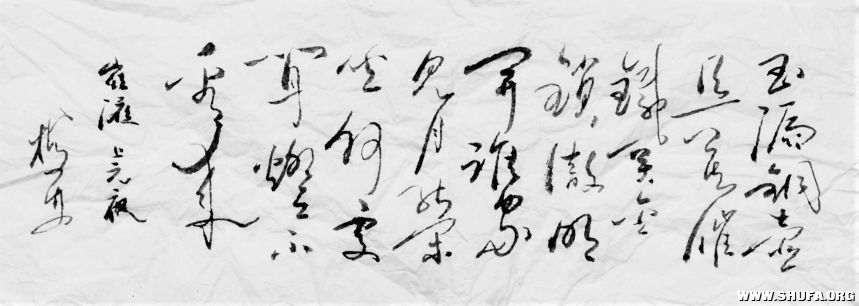 玉漏銅壺
且莫催
鐵關金
鎖徹明
開誰家
見月能閑
坐何處
聞燈不
看來
崔液上元夜
WWW.SHUFA.ORG